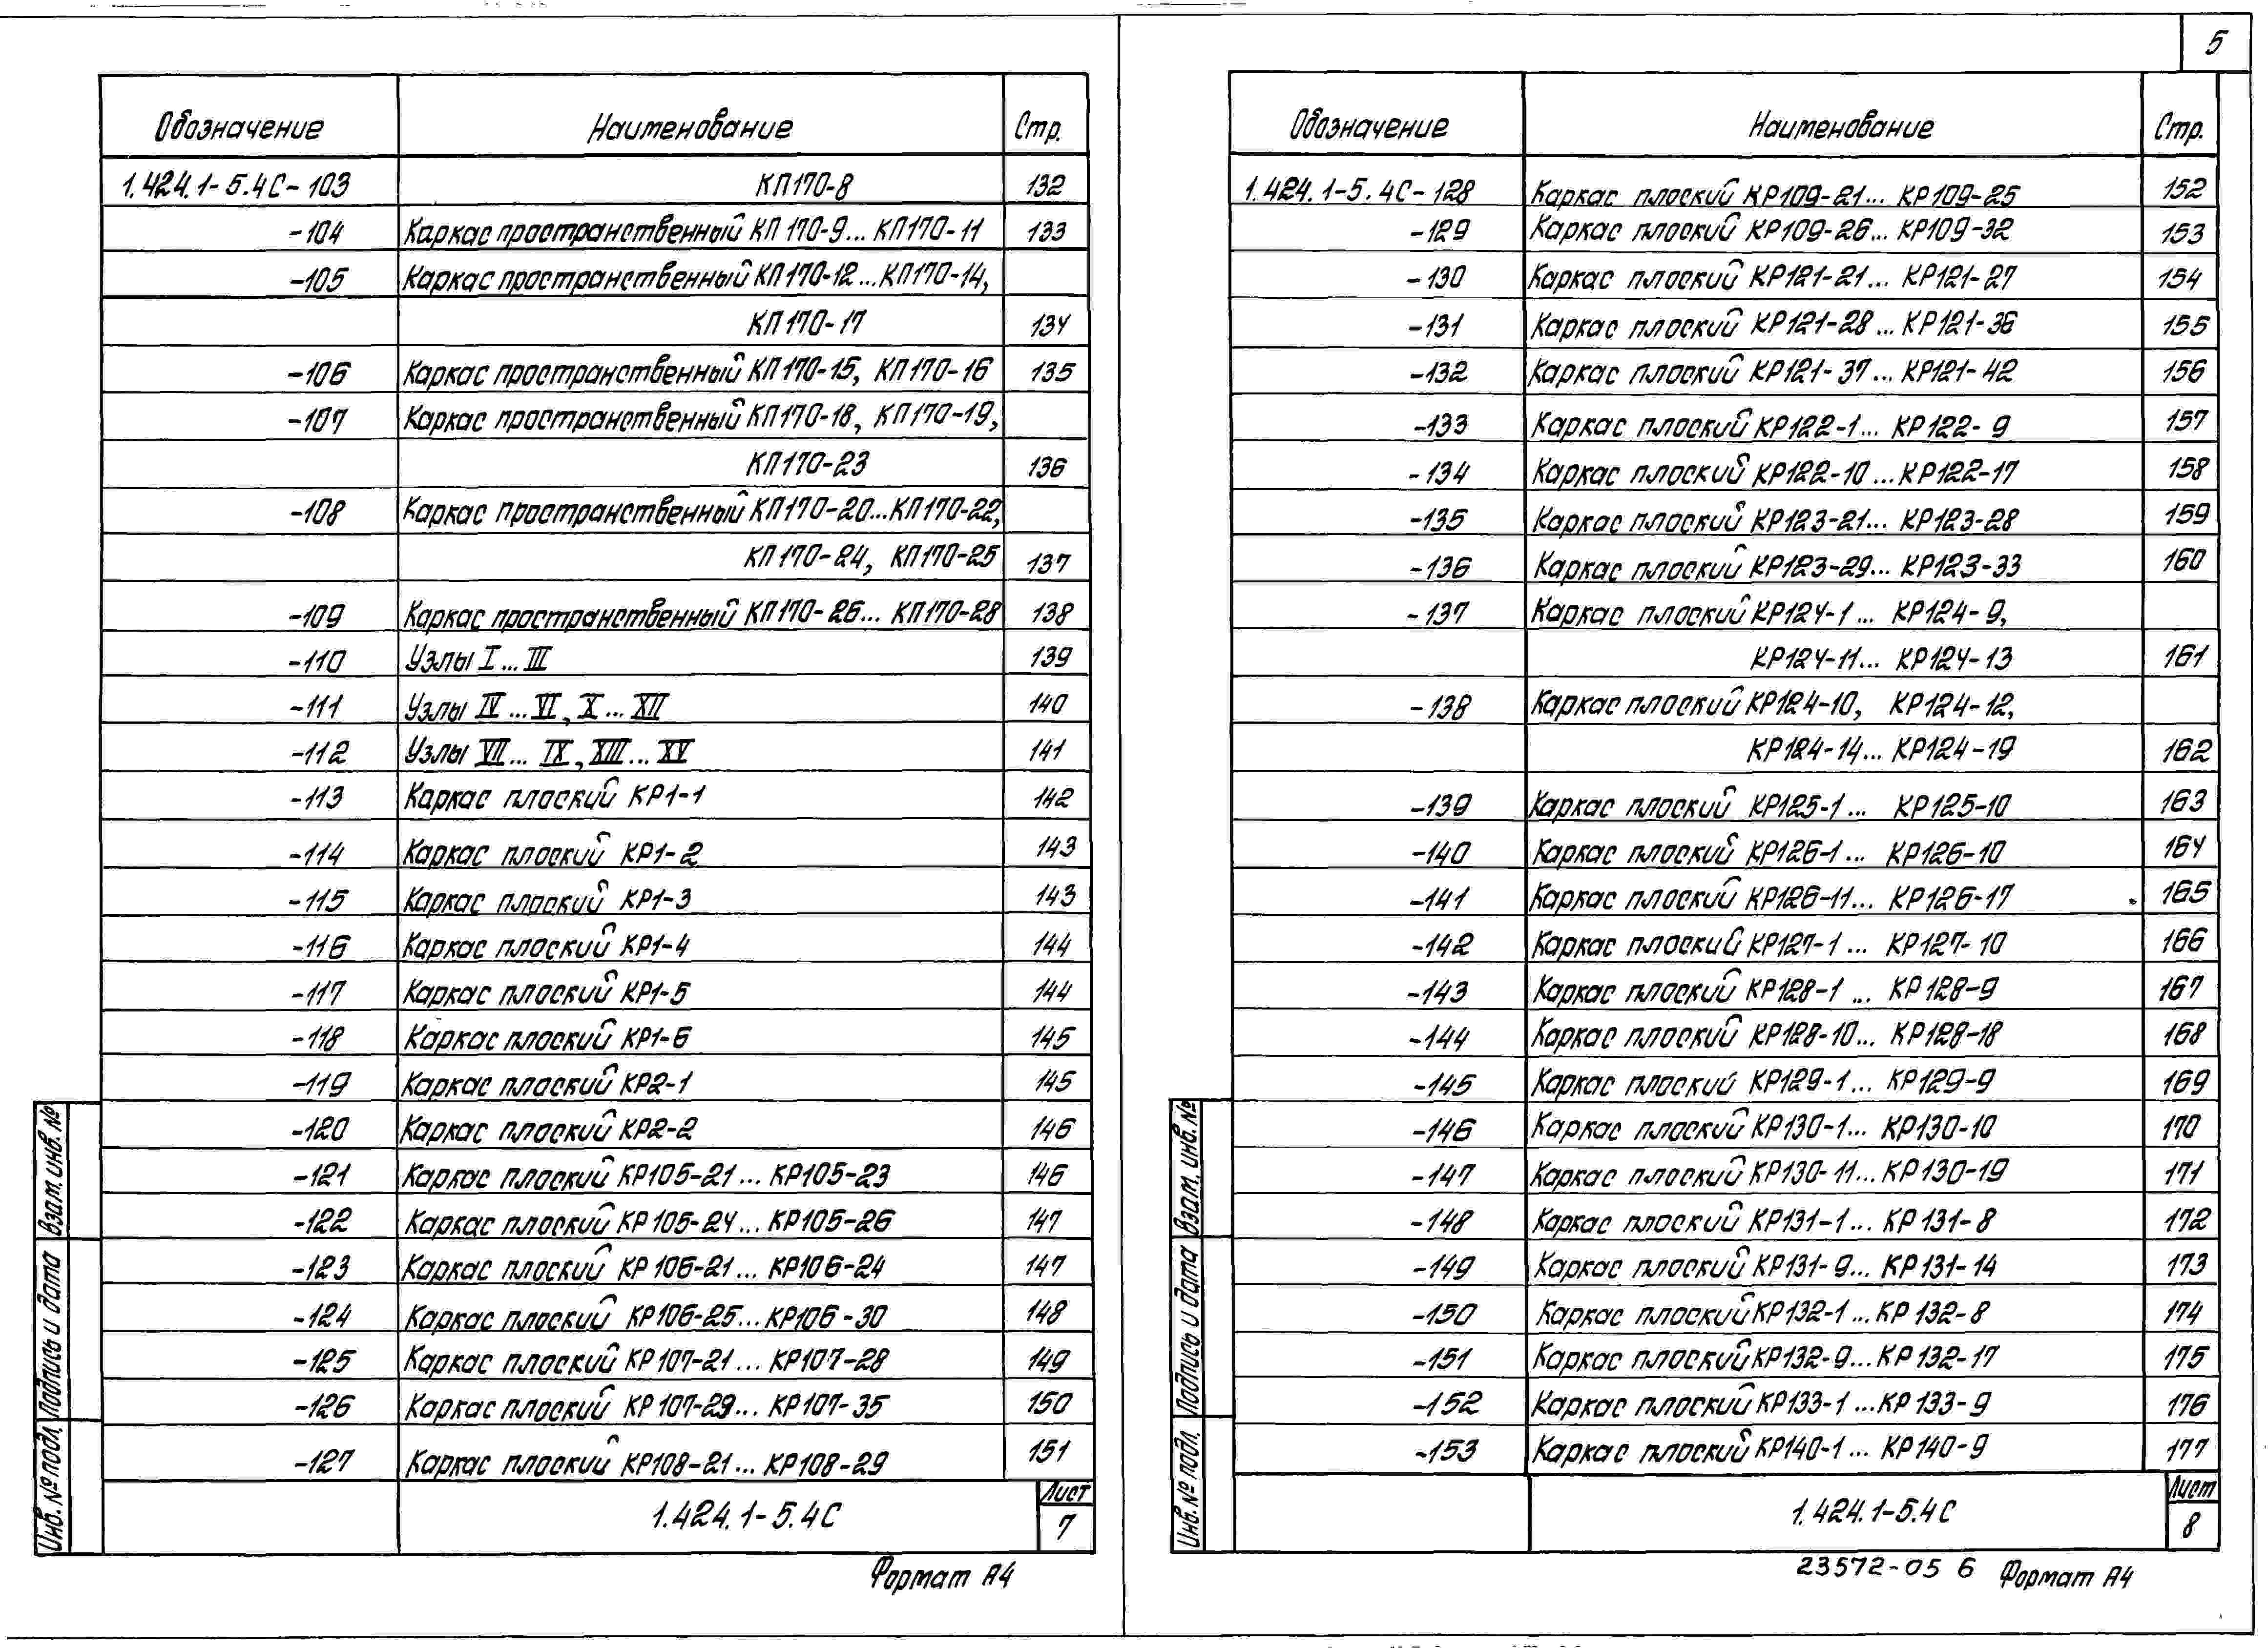 5
Обозначение Наименование Стр.
1.424.1-5.4С-103 КП170-8 132
-104 Каркас пространственный КП170-9...КП170-11 133
-105 Каркас пространственный КП170-12...КП170-14,
КП170-17 134
-106 Каркас пространственный КП170-15, КП170-16 135
-107 Каркас пространственный КП170-18, КП170-19,
КП170-23 136
-108 Каркас пространственный КП170-20...КП170-22,
КП170-24, КП170-25 137
-109 Каркас пространственный КП170-26...КП170-28 138
-110 Узлы I...III 139
-111 Узлы IV...VI, X...XII 140
-112 Узлы VII...IX, XIII...XV 141
-113 Каркас плоский КР1-1 142
-114 Каркас плоский КР1-2 143
-115 Каркас плоский КР1-3 143
-116 Каркас плоский КР1-4 144
-117 Каркас плоский КР1-5 144
-118 Каркас плоский КР1-6 145
-119 Каркас плоский КР2-1 145
-120 Каркас плоский КР2-2 146
-121 Каркас плоский КР105-21...КР105-23 146
-122 Каркас плоский КР105-24...КР105-26 147
-123 Каркас плоский КР106-21...КР106-24 147
-124 Каркас плоский КР106-25...КР106-30 148
-125 Каркас плоский КР107-21...КР107-28 149
-126 Каркас плоский КР107-29...КР107-35 150
-127 Каркас плоский КР108-21...КР108-29 151
1.424.1-5.4С
Лист
7
Инв. № подл. Подпись и дата Взам. инв. №
Формат А4
Обозначение Наименование Стр.
1.424.1-5.4С-128 Каркас плоский КР109-21...КР109-25 152
-129 Каркас плоский КР109-26...КР109-32 153
-130 Каркас плоский КР121-21...КР121-27 154
-131 Каркас плоский КР121-28...КР121-36 155
-132 Каркас плоский КР121-37...КР121-42 156
-133 Каркас плоский КР122-1...КР122-9 157
-134 Каркас плоский КР122-10...КР122-17 158
-135 Каркас плоский КР123-21...КР123-28 159
-136 Каркас плоский КР123-29...КР123-33 160
-137 Каркас плоский КР124-1...КР124-9,
КР124-11...КР124-13 161
-138 Каркас плоский КР124-10, КР124-12,
КР124-14...КР124-19 162
-139 Каркас плоский КР125-1...КР125-10 163
-140 Каркас плоский КР126-1...КР126-10 164
-141 Каркас плоский КР126-11...КР126-17 165
-142 Каркас плоский КР127-1...КР127-10 166
-143 Каркас плоский КР128-1...КР128-9 167
-144 Каркас плоский КР128-10...КР128-18 168
-145 Каркас плоский КР129-1...КР129-9 169
-146 Каркас плоский КР130-1...КР130-10 170
-147 Каркас плоский КР130-11...КР130-19 171
-148 Каркас плоский КР131-1...КР131-8 172
-149 Каркас плоский КР131-9...КР131-14 173
-150 Каркас плоский КР132-1...КР132-8 174
-151 Каркас плоский КР132-9...КР132-17 175
-152 Каркас плоский КР133-1...КР133-9 176
-153 Каркас плоский КР140-1...КР140-9 177
1.424.1-5.4С
Лист
8
Инв. № подл. Подпись и дата Взам. инв. №
23572-05 6 Формат А4